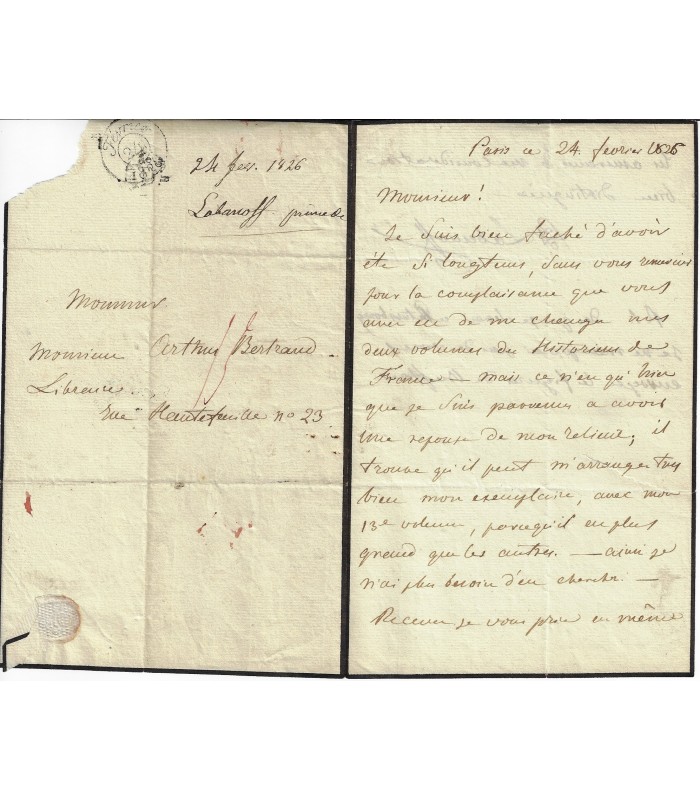 24 fev. 1826
Labanoff prince de
Monsieur
Monsieur Arthus Bertrand
Libraire
Rue Hautefeuille no 23
Paris ce 24 fevrier 1826
Monsieur!
Je suis bien faché d'avoir
été si longtems, sans vous remercier
pour la complaisance que vous
avez eu de me changer mes
deux volumes des Historiens de
France — mais ce n'en qu'hier
que je suis parvenu a avoir
une reponse de mon relieur; il
trouve qu'il peut m'arranger très
bien mon exemplaire, avec mon
13e volume, parcequ'il en plus
grand que les autres. — ainsi je
n'ai plus besoin d'en chercher. —
Recevez je vous prie en même